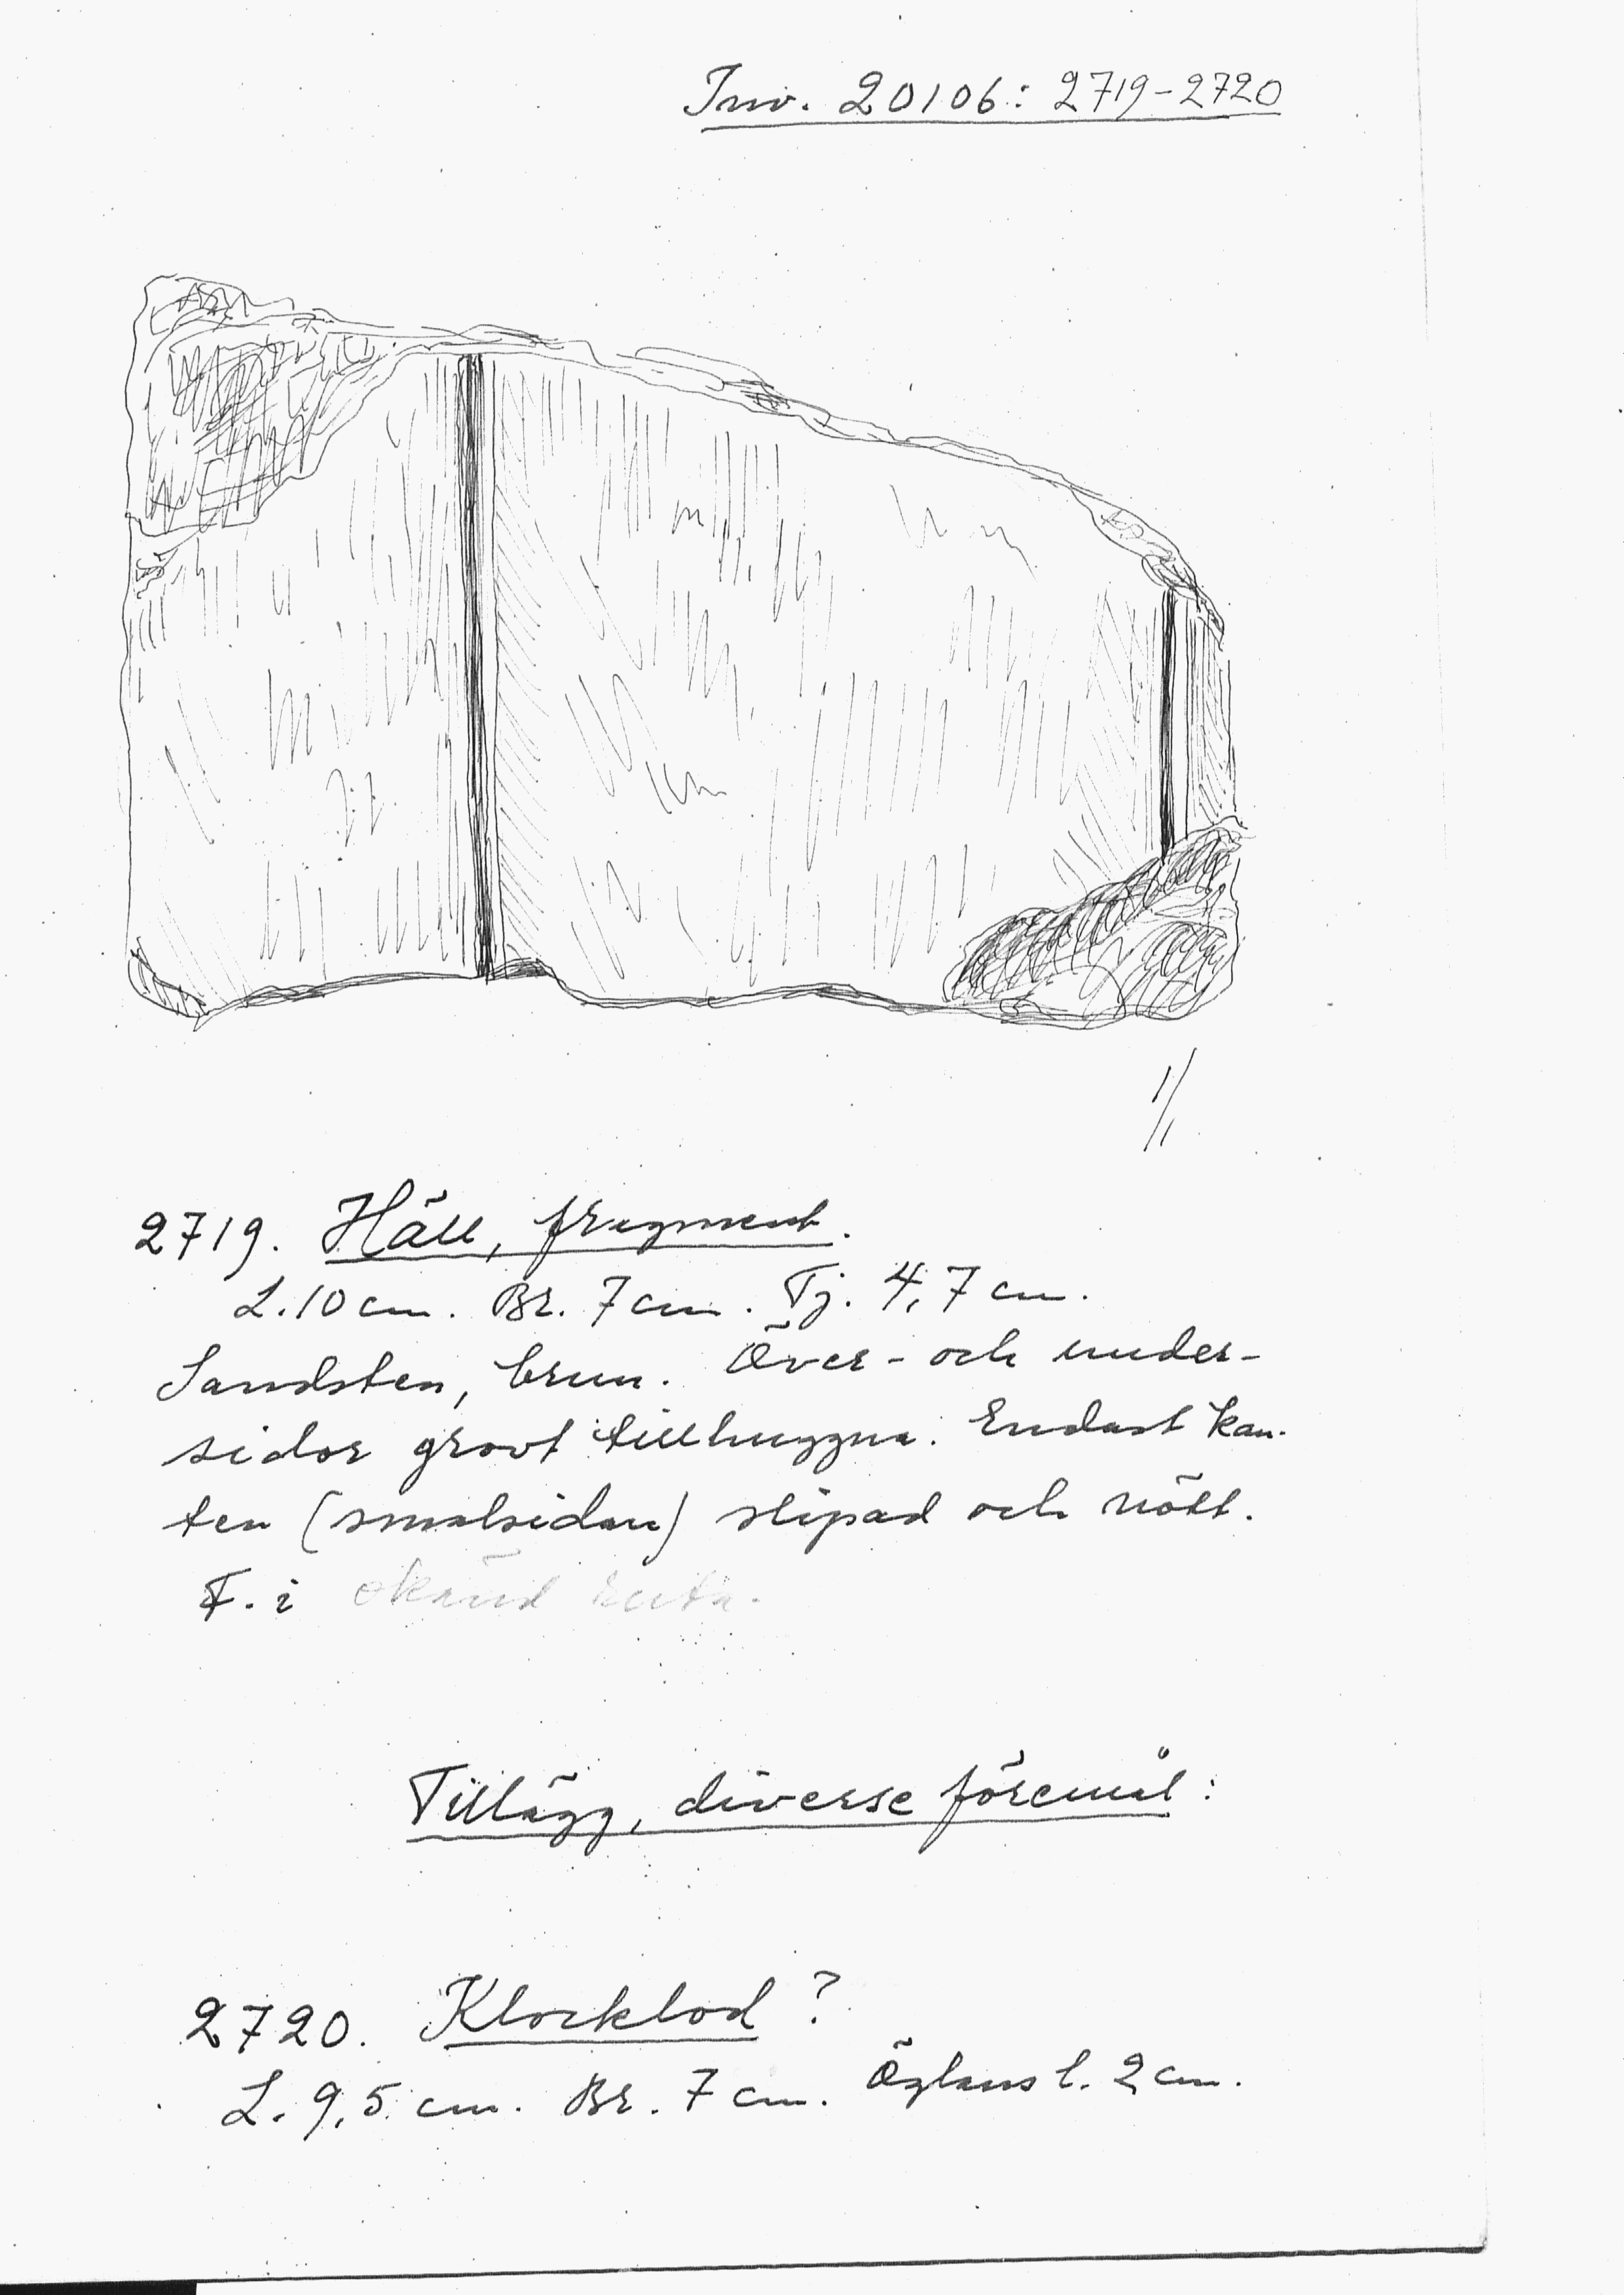 Inv. 20106: 2719-2720
1/1
2719. Häll, fragment.
L. 10 cm. Br. 7 cm. Tj. 4,7 cm.
Sandsten, brun. Över- och under-
sidor grovt tillhuggna. Endast kan-
ten (smalsidan) slipad och nött.
F. i okänd ruta.
Tillägg, diverse föremål:
2720. Klocklod?
L. 9,5 cm. Br. 7 cm. Öglans l. 2 cm.